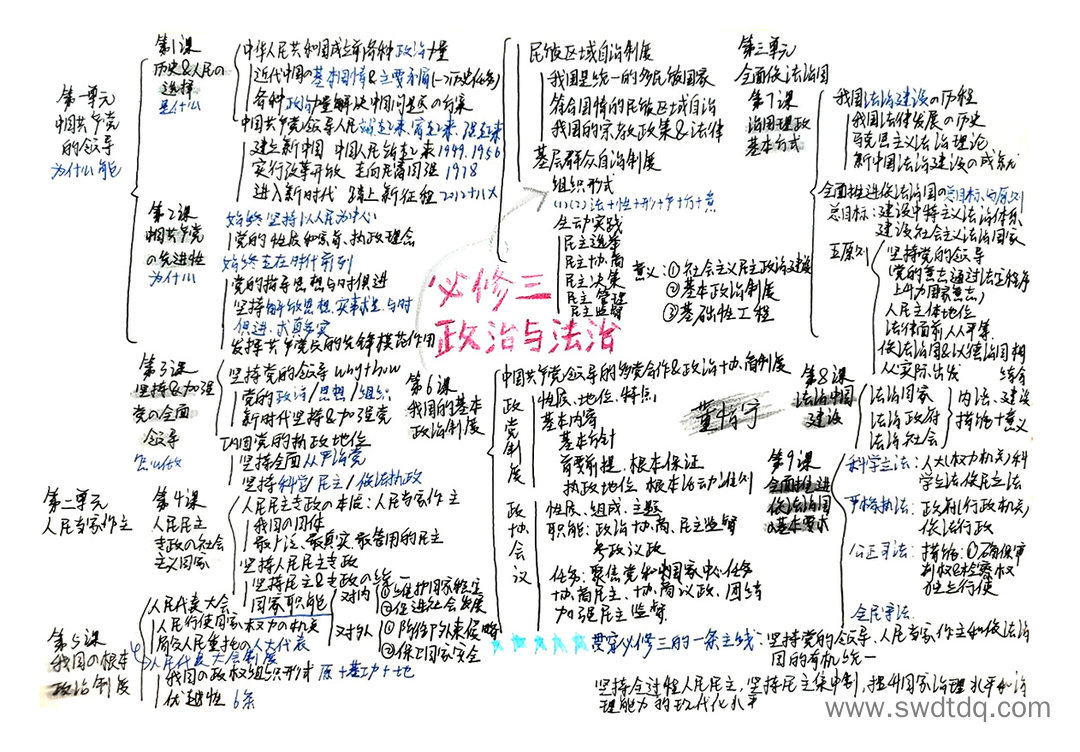 第一单元
中国共产党
的领导
为什么能
第1课
历史&人民的
选择
是什么
中华人民共和国成立前各种政治力量
近代中国的基本国情&主要矛盾(→历史任务)
各种政治力量解决中国问题的
中国共产党领导人民站起来、富起来、强起来
建立新中国 中国人民站起来 1949.1956
实行改革开放 走向民富国强 1978
进入新时代 踏上新征程 2012十八大
第2课
中国共产党
的先进性
为什么
始终坚持以人民为中心
党的性质和宗旨、执政理念
始终走在时代前列
党的指导思想与时俱进
坚持解放思想、实事求是、与时
俱进、求真务实
发挥共产党员的先锋模范作用
第3课
坚持&加强
党的全面
领导
怎么做
坚持党的领导 why+how
党的政治/思想/组织
新时代坚持&加强党
巩固党的执政地位
坚持全面从严治党
坚持科学/民主/依法执政
第二单元
人民当家作主
第4课
人民民主
专政的社会
主义国家
人民民主专政的本质:人民当家作主
我国的国体
最广泛、最真实、最管用的民主
坚持人民民主专政
坚持民主&专政的统一
国家职能
对内
①维护国家稳定
②促进社会发展
对外
①防御外来侵略
②保卫国家安全
第5课
我国的根本
政治制度
人民代表大会
人民行使国家权力的机关
肩负人民重托的人大代表
人民代表大会制度
我国的政权组织形式 原+基+功+地
优越性 6条
民族区域自治制度
我国是统一的多民族国家
符合国情的民族区域自治
我国的宗教政策&法律
基层群众自治制度
组织形式
(1)(2)法+性+形+内+方+意
生动实践
民主选举
民主协商
民主决策
民主管理
民主监督
意义:①社会主义民主政治建设
②基本政治制度
③基础性工程
必修三
政治与法治
第6课
我国的基本
政治制度
中国共产党领导的多党合作&政治协商制度
政党制度
性质、地位、特点
基本内容
基本方针
首要前提、根本保证
执政地位 根本活动准则
政协会议
性质、组成、主题
职能:政治协商、民主监督
参政议政
任务:聚焦党和国家中心任务
协商民主、协商议政、团结
加强民主监督
第三单元
全面依法治国
第7课
治国理政
基本方式
我国法治建设的历程
我国法律发展的历史
马克思主义法治理论
新中国法治建设的成就
全面推进依法治国的总目标与原则
总目标:建设中特主义法治体系
建设社会主义法治国家
五原则
坚持党的领导
(党的意志通过法定程序
上升为国家意志)
人民主体地位
法律面前人人平等
依法治国&以德治国相
结合
从实际出发
董怡宁
第8课
法治中国
建设
法治国家
法治政府
法治社会
内涵、建设
措施+意义
第9课
全面推进
依法治国
的基本要求
科学立法:人大(权力机关)科
学立法依民立法
严格执法:政府(行政机关)
依法行政
公正司法:措施:①确保审
判权&检察权
独立行使
全民守法:
★★★★★贯穿必修三的一条主线:坚持党的领导、人民当家作主和依法治
国的有机统一
坚持全过程人民民主,坚持民主集中制,提升国家治理水平和治
理能力的现代化水平
www.swdtdq.com